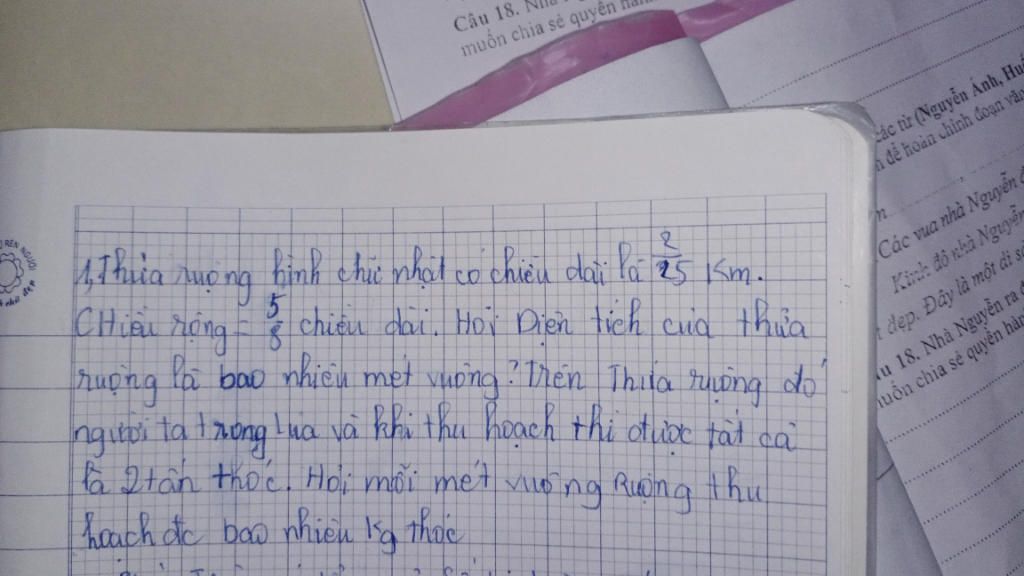 Câu 18. Nhà
muốn chia sẻ quyền hàn
các từ (Nguyễn Ánh, Huế
để hoàn chỉnh đoạn văn
Các vua nhà Nguyễn
Kinh đô nhà Nguyễn
đẹp. Đây là một di sả
18. Nhà Nguyễn ra đ
muốn chia sẻ quyền hàn
1, Thửa ruộng hình chữ nhật có chiều dài là 2/25 Km.
CHiều rộng = 5/8 chiều dài. Hỏi Diện tích của thửa
ruộng là bao nhiêu mét vuông? Trên Thửa ruộng đó
người ta trồng lúa và khi thu hoạch thì được tất cả
là 2 tấn thóc. Hỏi mỗi mét vuông Ruộng thu
hoạch đc bao nhiêu kg thóc